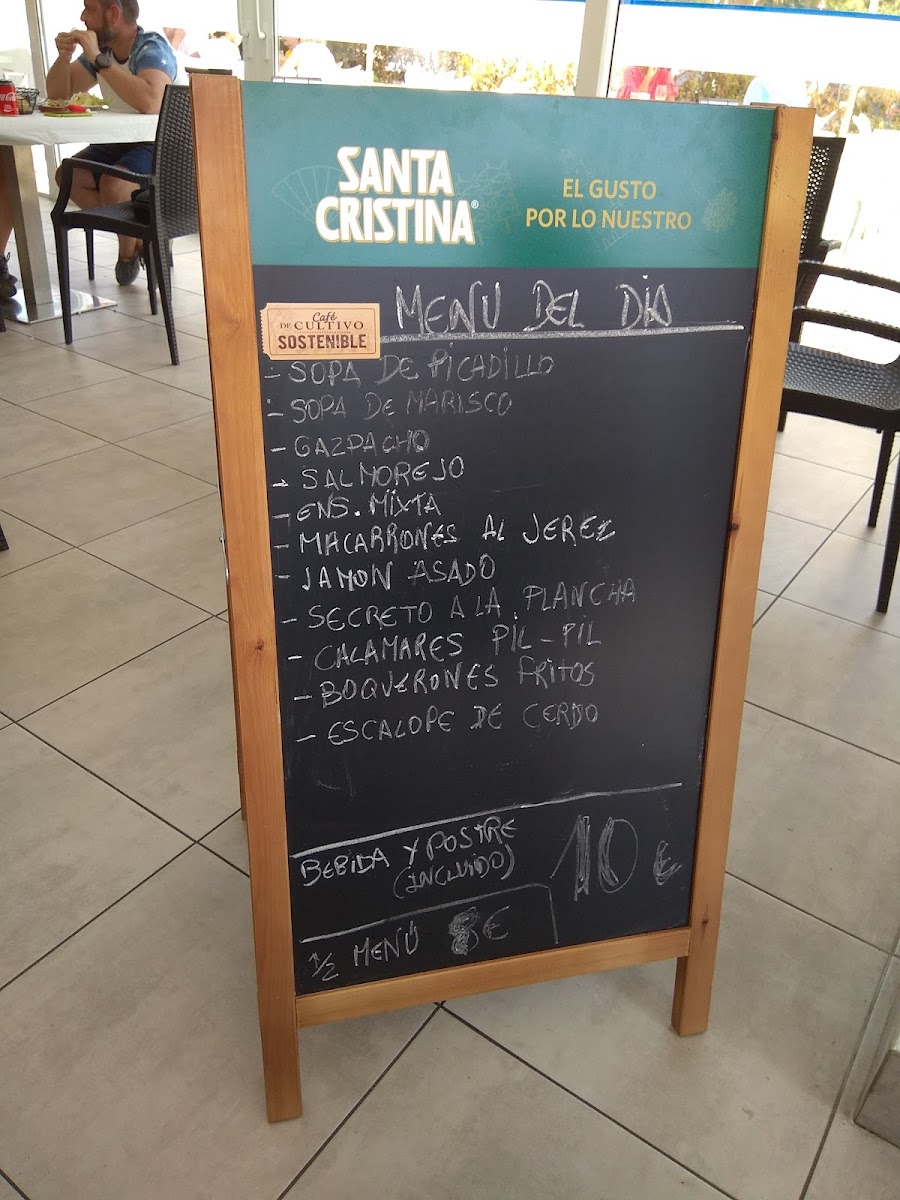 SANTA
CRISTINA®
EL GUSTO
POR LO NUESTRO
Café
DE CULTIVO
SOSTENIBLE
MENU DEL DIA
- SOPA DE PICADILLO
- SOPA DE MARISCO
- GAZPACHO
- SALMOREJO
- ENS. MIXTA
- MACARRONES AL JEREZ
- JAMON ASADO
- SECRETO A LA PLANCHA
- CALAMARES PIL-PIL
- BOQUERONES FRITOS
- ESCALOPE DE CERDO
BEBIDA Y POSTRE
(INCLUIDO)
10 €
1/2 MENÚ 8€